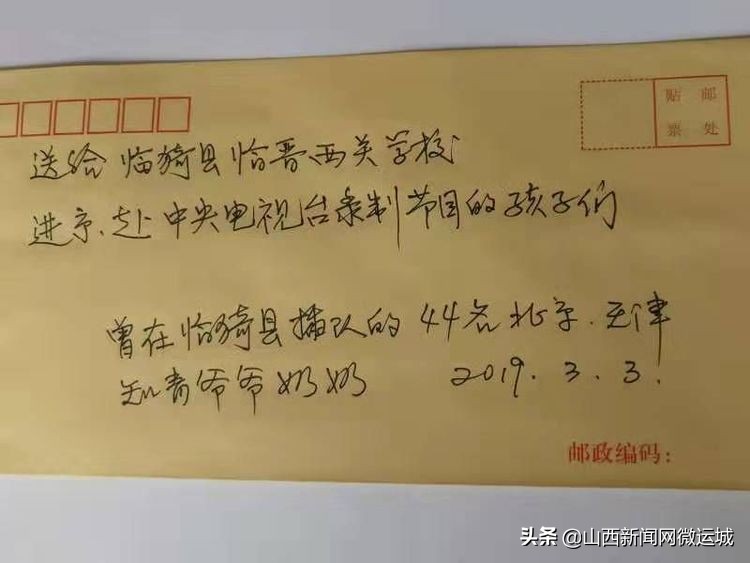 贴 邮
票 处
送给 临猗县恰晋西关学校
进京、赴中央电视台录制节目的孩子们
曾在临猗县插队的44名北京、天津
知青爷爷奶奶 2019.3.3.
邮政编码：
头条 @山西新闻网微运城